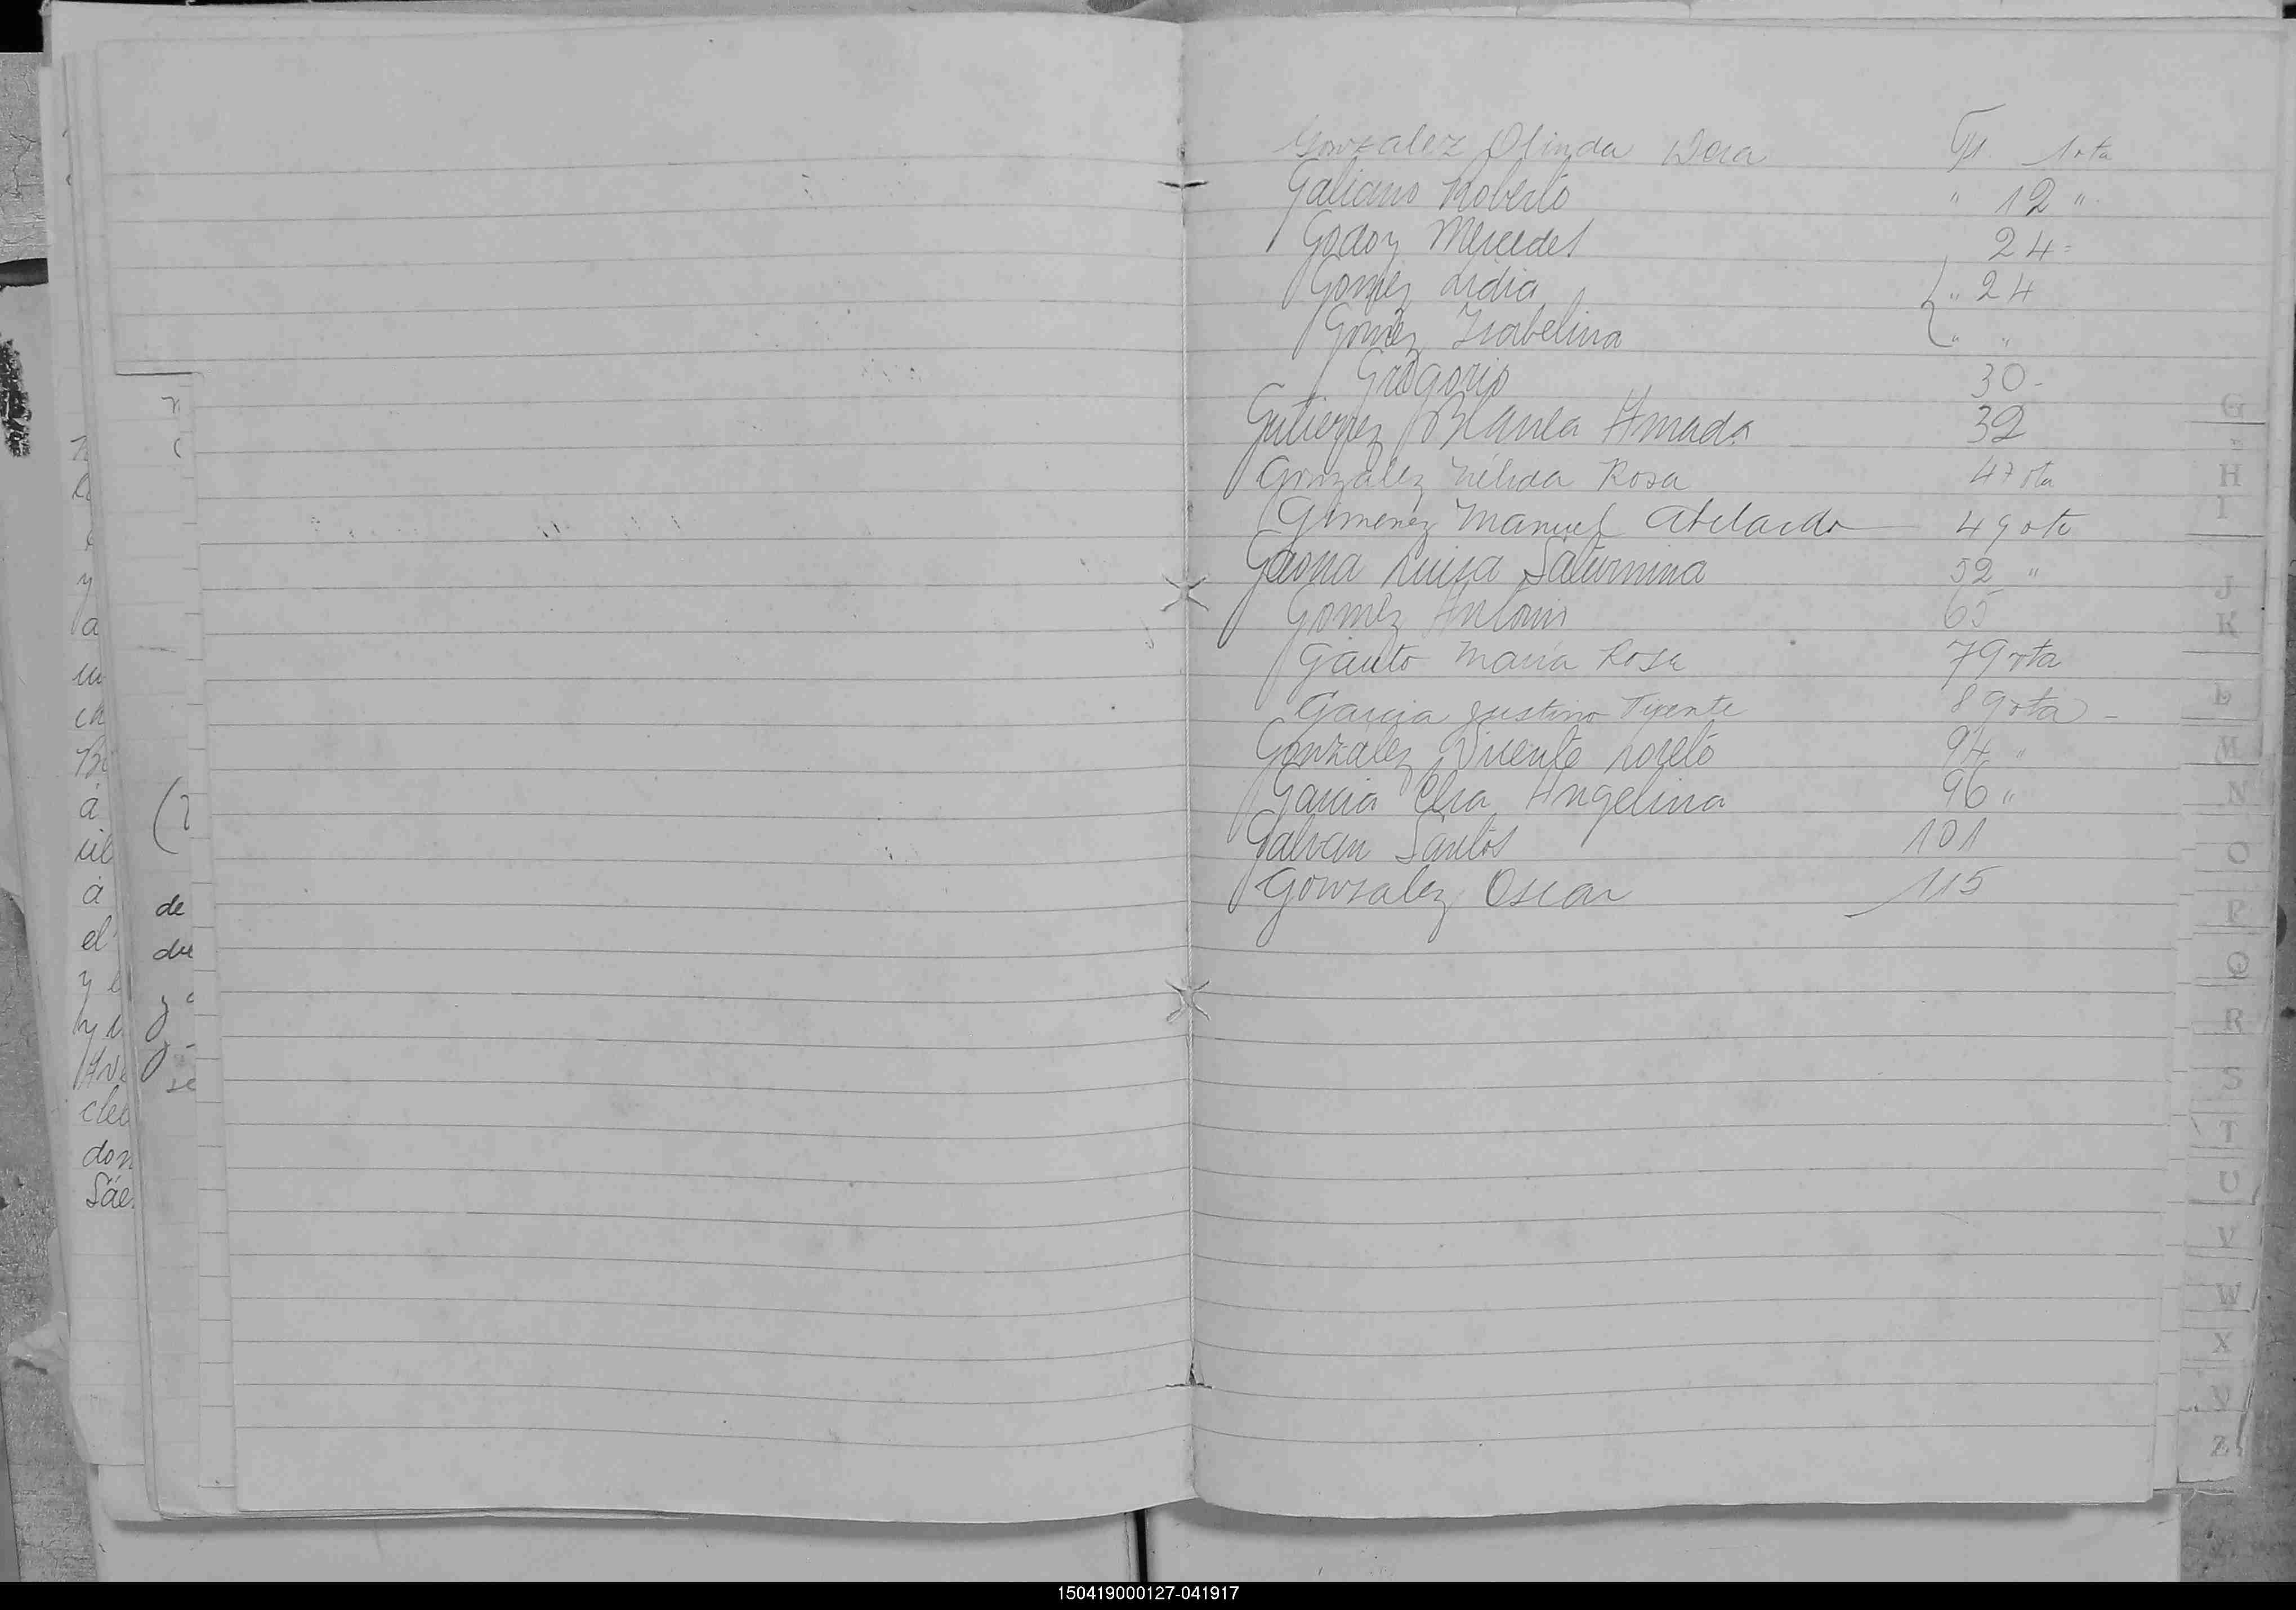 Gonzalez Olinda Dora Fs 1 vta
Galiano Roberto " 12 "
Godoy Mercedes 24 =
Gomez Lidia " 24
Gomez Isabelina " "
Gregorio 30 -
Gutierrez Blanca Amada 32
Gonzalez Nélida Rosa 47 vta
Gimenez Manuel Abelardo 49 vta
Gaona Luisa Saturnina 52 "
Gomez Antonio 65
Gauto María Rosa 79 vta
Garcia Justino 89 vta -
González Vicente Loreto 94 "
Garcia Elsa Angelina 96 "
Galvan Santos 101
Gonzalez Oscar 115
G
H
I
J
K
L
M
N
O
P
Q
R
S
T
U
V
W
X
Y
Z
de
150419000127-041917